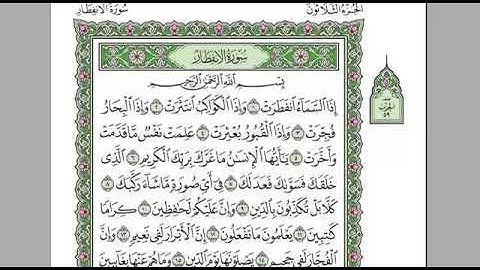 سُورَةُ الانفِطَارِ
الجُزْءُ الثَّلَاثُونَ
سُورَةُ الانفِطَارِ
بِسْمِ اللَّهِ الرَّحْمَٰنِ الرَّحِيمِ
إِذَا السَّمَاءُ انفَطَرَتْ ١ وَإِذَا الْكَوَاكِبُ انتَثَرَتْ ٢ وَإِذَا الْبِحَارُ
فُجِّرَتْ ٣ وَإِذَا الْقُبُورُ بُعْثِرَتْ ٤ عَلِمَتْ نَفْسٌ مَّا قَدَّمَتْ
وَأَخَّرَتْ ٥ يَا أَيُّهَا الْإِنسَانُ مَا غَرَّكَ بِرَبِّكَ الْكَرِيمِ ٦ الَّذِي
خَلَقَكَ فَسَوَّاكَ فَعَدَلَكَ ٧ فِي أَيِّ صُورَةٍ مَّا شَاءَ رَكَّبَكَ ٨
كَلَّا بَلْ تُكَذِّبُونَ بِالدِّينِ ٩ وَإِنَّ عَلَيْكُمْ لَحَافِظِينَ ١٠ كِرَامًا
كَاتِبِينَ ١١ يَعْلَمُونَ مَا تَفْعَلُونَ ١٢ إِنَّ الْأَبْرَارَ لَفِي نَعِيمٍ ١٣ وَإِنَّ
الْفُجَّارَ لَفِي جَحِيمٍ ١٤ يَصْلَوْنَهَا يَوْمَ الدِّينِ ١٥ وَمَا هُمْ عَنْهَا بِغَائِبِينَ